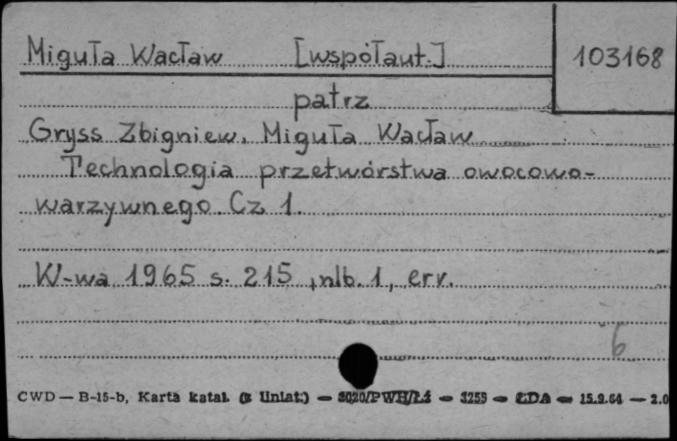 Miguła Wacław [współaut.] 103168
patrz
Gryss Zbigniew, Miguła Wacław
Technologia przetwórstwa owocowo-
warzywnego. Cz 1.
W-wa 1965 s. 215, nlb. 1, err.
6
CWD — B-15-b, Karta katal. (z liniat.) — 3020/PWH/Łź — 3259 — ŁDA — 15.9.64 — 2.0